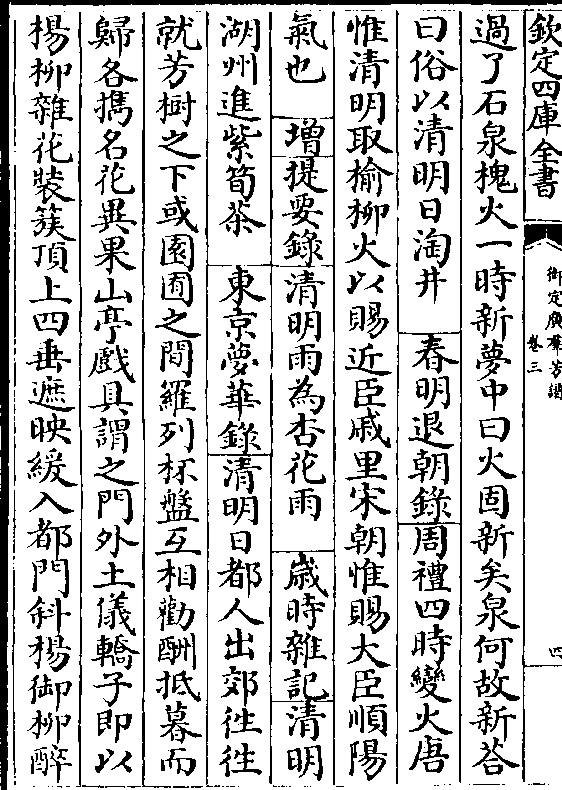 欽定四庫全書
御定廣羣芳譜
卷三
四
過了石泉槐火一時新夢中曰火固新矣泉何故新荅
曰俗以清明日淘井 春明退朝錄周禮四時變火唐
惟清明取榆柳火以賜近臣戚里宋朝惟賜大臣順陽
氣也 增提要錄清明雨為杏花雨 歲時雜記清明
湖州進紫筍茶 東京夢華錄清明日都人出郊往往
就芳樹之下或園囿之間羅列杯盤互相勸酬抵暮而
歸各擕名花異果山亭戲具謂之門外土儀轎子即以
楊柳雜花裝簇頂上四垂遮映緩入都門斜楊御柳醉